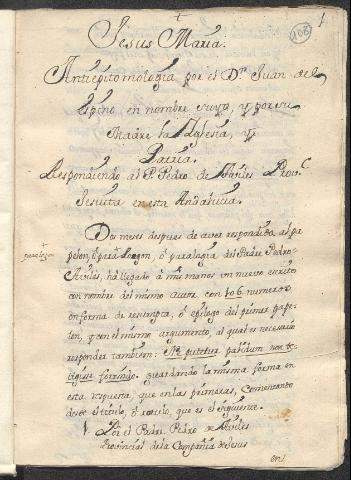 1
108
Jesus Maria.
Antiepitomologia por el Dr Juan del
Espino en nombre suyo, y por su
Madre la Yglesia, y
Patria.
Respondiendo al P. Pedro de Aviles Provl
Jesuita en esta Andalucia.
Dos meses despues de aver respondido al pa
pelon, ô paralogon, ô paralogia del Padre Pedro
paralogon
Aviles, ha llegado à mis manos un nuevo escrito
con nombre del mismo autor con 106 numeros
en forma de respuesta, ô epilogo del primer pape
lon, y con el mismo argumento, al qual es necesario
responder tambien: Ne putetur palidum non te
tigisse formido. guardando la misma forma en
esta respuesta, que en las primeras, comenzando
desde el titulo, ô rotulo, que es el siguiente.
1. Por el Padre Pedro de Aviles
Provincial de la Compañia de Jesus
en l